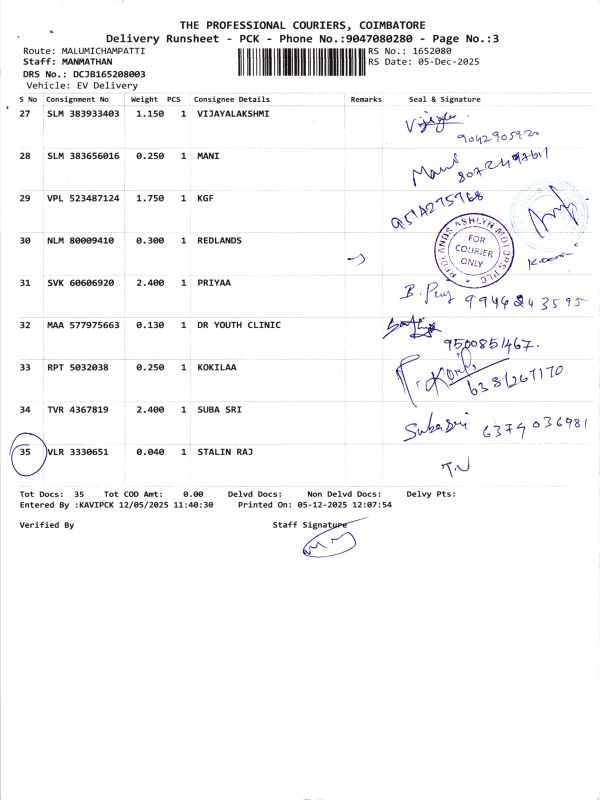 THE PROFESSIONAL COURIERS, COIMBATORE
Delivery Runsheet - PCK - Phone No.:9047080280 - Page No.:3
Route: MALUMICHAMPATTI RS No.: 1652080
Staff: MANMATHAN RS Date: 05-Dec-2025
DRS No.: DCJB165208003
Vehicle: EV Delivery
S No Consignment No Weight PCS Consignee Details Remarks Seal & Signature
27 SLM 383933403 1.150 1 VIJAYALAKSHMI
9042905920
28 SLM 383656016 0.250 1 MANI
Mani
29 VPL 523487124 1.750 1 KGF
30 NLM 80009410 0.300 1 REDLANDS
REDLANDS ASHLYN MOTORS PLC
FOR
COURIER
ONLY
31 SVK 60606920 2.400 1 PRIYAA
9944243595
32 MAA 577975663 0.130 1 DR YOUTH CLINIC
9500851467.
33 RPT 5032038 0.250 1 KOKILAA
6381267170
34 TVR 4367819 2.400 1 SUBA SRI
Suba Sri 6379036981
35 VLR 3330651 0.040 1 STALIN RAJ
TN
Tot Docs: 35 Tot COD Amt: 0.00 Delvd Docs: Non Delvd Docs: Delvy Pts:
Entered By :KAVIPCK 12/05/2025 11:40:30 Printed On: 05-12-2025 12:07:54
Verified By Staff Signature